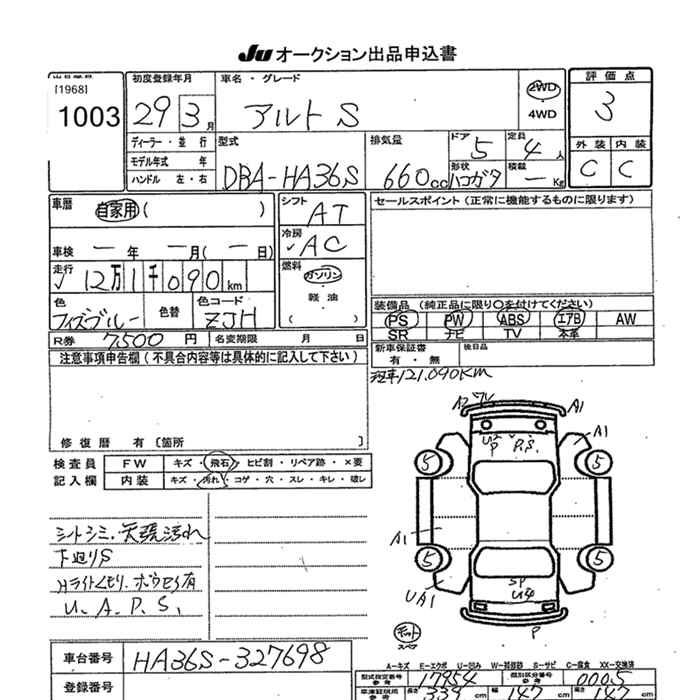 JU オークション出品申込書
出品番号 初度登録年月 車名・グレード 評価点
[1968]
1003
29 3月 アルト S 2WD 4WD 3
ディーラー・並行 型式 排気量 ドア 定員 外装 内装
モデル年式 年 5 4人
ハンドル 左・右 DBA-HA36S 660cc 形状 ハコガタ 積載 ー Kg C C
車歴 自家用( ) シフト AT セールスポイント(正常に機能するものに限ります)
冷房 AC
車検 ー年 ー月(ー日)
走行 12万1千090km 燃料 ガソリン
軽油
( )
色 色替 色コード 装備品(純正品に限り○を付けてください)
フィズブルー ZJH PS PW ABS エアB AW
SR ナビ TV 本革
R券 7,500円 名変期限 月 日 新車保証書 後日品
有・無
注意事項申告欄(不具合内容等は具体的に記入して下さい) 121,090KM
修復歴 有〔箇所 〕
検査員 FW キズ・飛石・ヒビ割・リペア跡・×要
記入欄 内装 キズ・汚れ・コゲ・穴・スレ・キレ・破レ
A1
A1
U2 P P.S.
5 5
シートシミ、天張汚れ
下廻りS A1
Hライトくもり、ボウセイ有 5 5
U.A.P.S. UA1
SP
U4
P
スペア
車台番号 HA36S-327698
A-キズ E-エクボ U-凹み W-補修跡 S-サビ C-腐食 XX-交換済
型式指定番号 参考 17954 類別区分番号 参考 0005
登録番号 車庫証明用 参考 長さ 339cm 幅 147cm 高さ 147cm